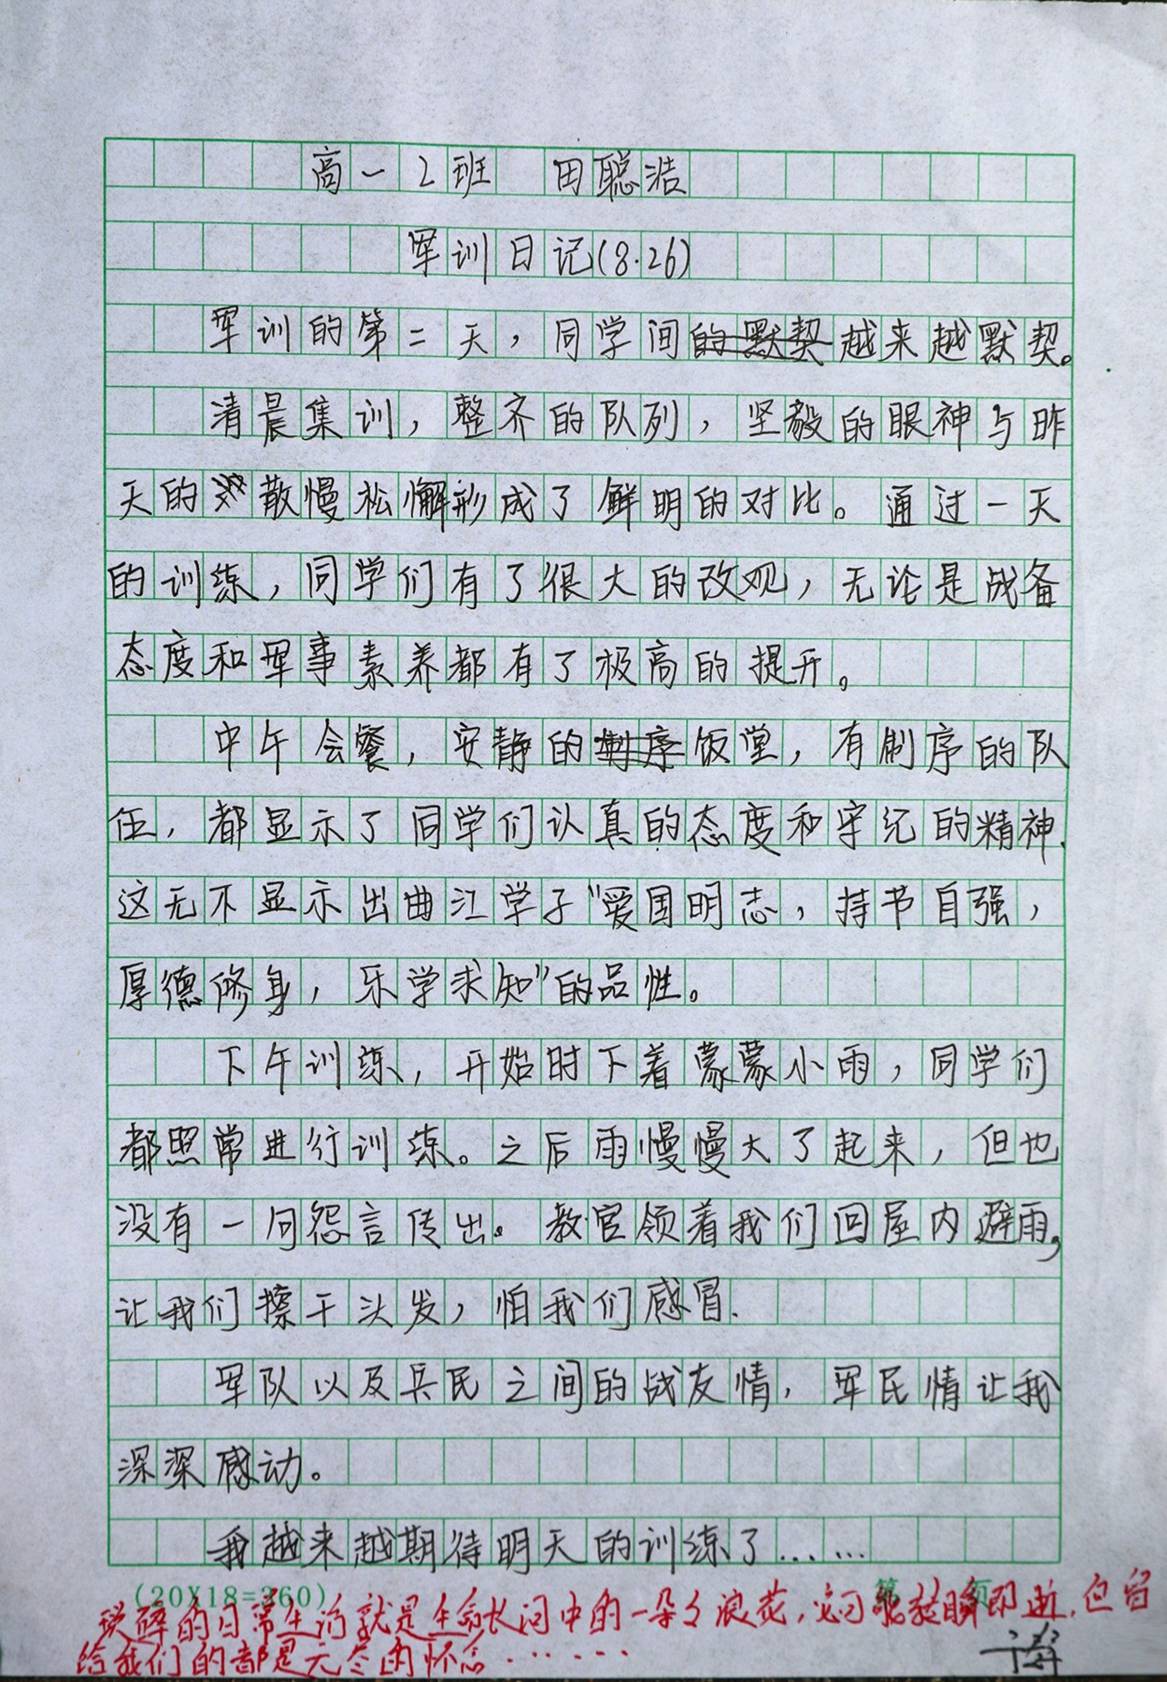 高一2班 田聪浩
军训日记(8.26)
军训的第二天，同学间的默契越来越默契。
清晨集训，整齐的队列，坚毅的眼神与昨
天的散慢松懈形成了鲜明的对比。通过一天
的训练，同学们有了很大的改观，无论是战备
态度和军事素养都有了极高的提升。
中午会餐，安静的制序饭堂，有制序的队
伍，都显示了同学们认真的态度和守纪的精神.
这无不显示出曲江学子"爱国明志，持节自强，
厚德修身，乐学求知"的品性。
下午训练，开始时下着蒙蒙小雨，同学们
都照常进行训练。之后雨慢慢大了起来，但也
没有一句怨言传出。教官领着我们回屋内避雨，
让我们擦干头发，怕我们感冒.
军队以及兵民之间的战友情，军民情让我
深深感动。
我越来越期待明天的训练了……
(20X18=360) 第 页
琐碎的日常生活就是生命长河中的一朵々浪花，它可能转瞬即逝，但留
给我们的都是无尽的怀念……